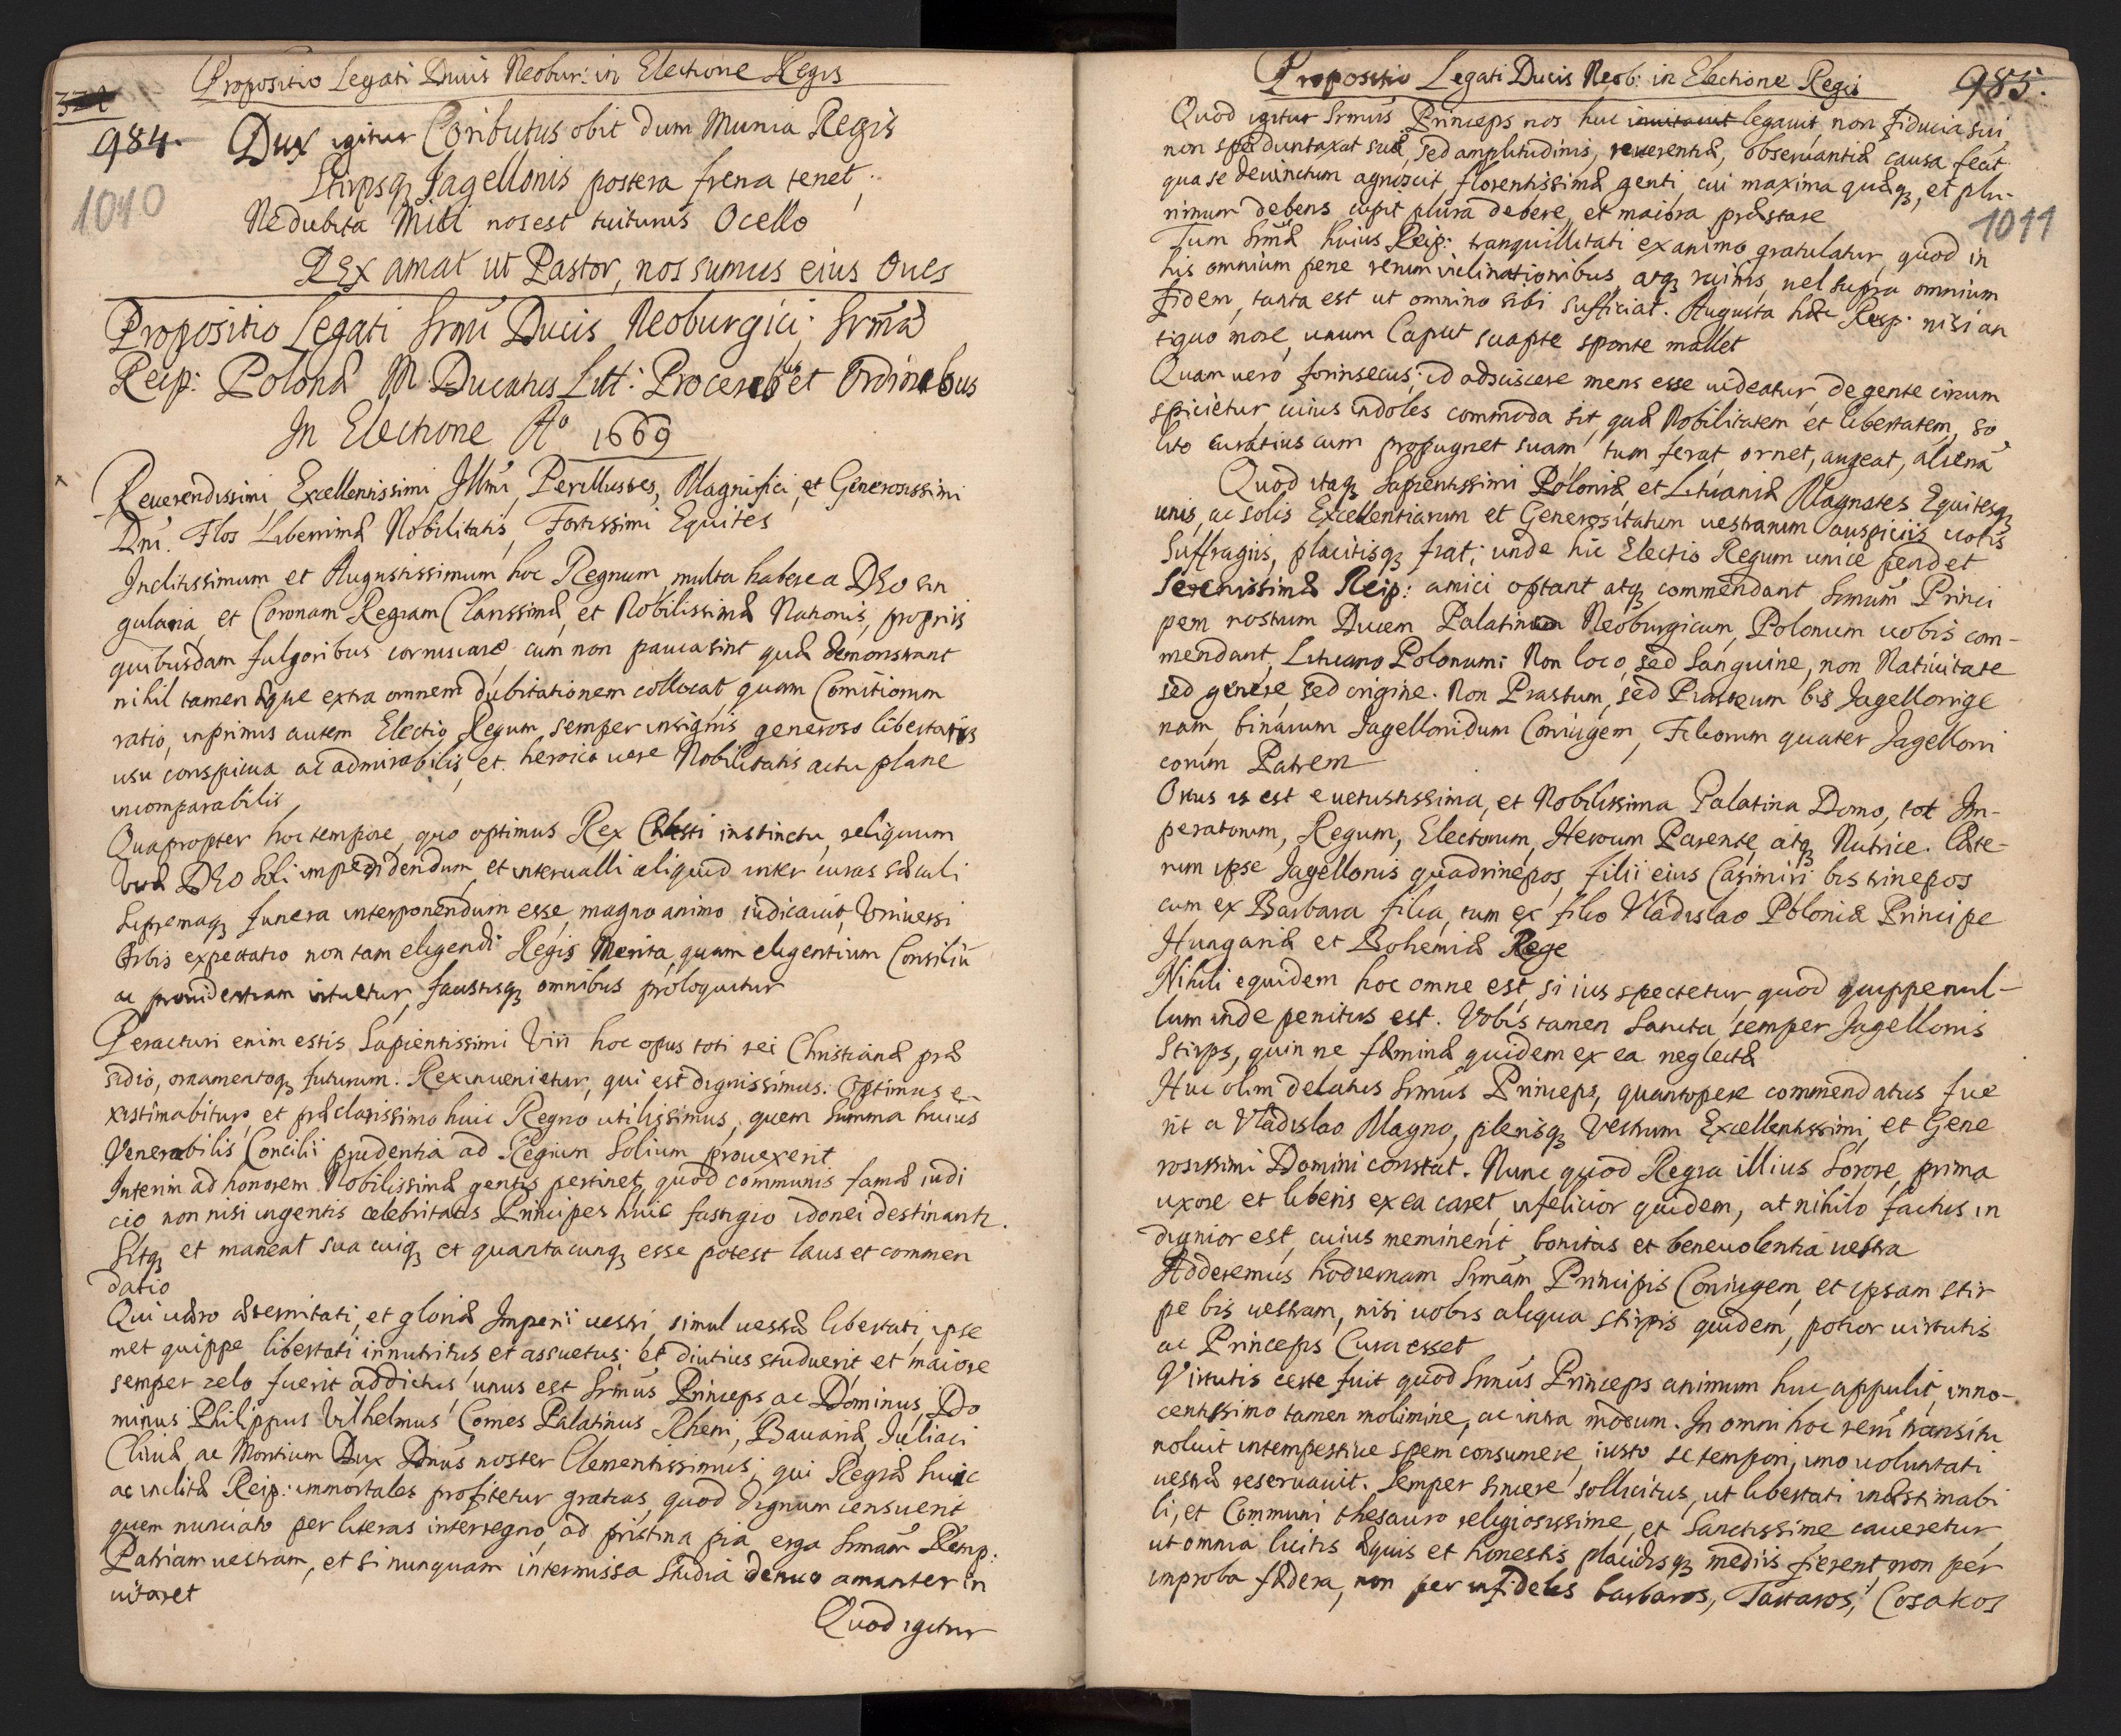 Propositio Legati Ducis Neobur: in Electione Regis
984.
1010
Dux igitur Coributus obit dum Munia Regis
Stirpsq Jagellonis postera frena tenet;
Ne dubita Miti nos est tuiturus Ocello
Rex amat ut Pastor, nos sumus eius Oues
Propositio Legati Srmi Ducis Neoburgici; Srmæ
Reip: Polonæ M. Ducatus Litt: Proceribus et Ordinibus
In Electione Aº 1669
Reuerendissimi, Excellentissimi Jllmi, Perillustres, Magnifici, et Generosissimi
Dni. Flos Liberrimæ Nobilitatis, Fortissimi Equites
Inclitissimum et Augustissimum hoc Regnum multa habere a DEO sin
gularia, et Coronam Regiam Clarissimæ, et Nobilissimæ Nationis, propriis
quibusdam fulgoribus corruscare cum non pauca sint quæ demonstrant
nihil tamen æque extra omnem dubitationem collocat, quam Comitiorum
ratio, inprimis autem Electio Regum semper insignis generoso libertatis
usu conspicua ac admirabilis, et heroico uere Nobilitatis actu plane
incomparabilis
Quapropter hoc tempore, quo optimus Rex Cælesti instinctu, reliquum
Vitæ DEO Soli impendendum, et interualli aliquid inter curas sæculi
Supremaq funera interponendum esse, magno animo iudicauit, Vniuersi
Orbis expectatio non tam eligendi Regis Merita, quam eligentium Consiliū
ac prouidentiam intuetur, faustisq omnibus prologuitur
Peracturi enim estis Sapientissimi Viri hoc opus toti rei Christianæ præ
sidio, ornamentoq futurum. Rex inuenietur, qui est dignissimus: Optimus e-
xistimabitur, et præclarissimo huic Regno utilissimus, quem Summa huius
Venerabilis Concilii prudentia ad Regium Solium prouexerit
Interim ad honorem Nobilissimæ gentis pertinet, quod communis famæ iudi
cio non nisi ingentis celebritatis Principes huic fastigio idonei destinantr.
Sitq et maneat sua cuiq et quantacunq esse potest laus et commen
datio
Qui uero æternitati, et gloriæ Imperii uestri, simul uestræ libertati, ipse
met quippe libertati innutritus et assuetus; et diutius studuerit et maiore
semper zelo fuerit addictus unus est Srmus Princeps ac Dominus Do
minus Philippus Vilhelmus Comes Palatinus Rheni, Bauariæ, Juliaci
Cliuiæ, ac Montium Dux Dnus noster Clementissimus; qui Regiæ huic
ac inclitæ Reip: immortales profitetur gratias, quod dignum censuerit
quem nunciato per literas interregno ad pristina pia erga Srmam Remp:
Patriam uestram, et si nunquam intermissa studia denuo amanter in
uitaret
Quod igitur
Propositio Legati Ducis Neob: in Electione Regis
985.
Quod igitur Srmus Princeps nos huc inuitauit legauit, non fiducia sui,
non spe duntaxat suæ, sed amplitudinis, reuerentiæ, obseruantiæ causa fecit
qua se deuinctum agnoscit florentissimæ genti, cui maxima quæq, et plu-
rimum debens cupit plura debere, et maiora præstare
1011
Tum Srmæ huius Reip: tranquillitati ex animo gratulatur, quod in
his omnium pene rerum inclinationibus, atq ruinis, uel supra omnium
fidem, tanta est ut omnino sibi sufficiat. Augusta hæc Resp: nisi an
tiquo more, unum Caput suapte sponte mallet
Quam uero forinsecus; id adsciscere mens esse uideatur, de gente circum
spicietur, cuius indoles commoda sit, quæ Nobilitatem et libertatem, so
lito curatius cum propugnet suam tum ferat, ornet, augeat, alienā
Quod itaq Sapientissimi Poloniæ et Lituaniæ Magnates Equitesq
unis, ac solis Excellentiarum et Generositatum uestrarum auspiciis uotis
Suffragiis, placitisq fiat; unde hic Electio Regum unice pendet
Serenissimæ Reip: amici optant atq commendant Srmum Princi
pem nostrum Ducem Palatinum Neoburgicum, Polonum uobis com-
mendant, Lituano Polonum: Non loco, sed Sanguine, non Natiuitate
sed genere, sed origine. Non Piastum, sed Piasteum bis Jagellonige
nam, binarum Jagellonidum Coniugem, Filiorum quater Jagelloni
corum Patrem
Ortus is est e uetustissima, et Nobilissima Palatina Domo, tot Im-
peratorum, Regum, Electorum, Heroum Parente, atq Nutrice. Cæte-
rum ipse Jagellonis quadrinepos, filii eius Casimiri bis trinepos
cum ex Barbara filia, tum ex filio Vladislao Poloniæ Principe
Hungariæ et Bohemiæ Rege
Nihili equidem hoc omne est, si ius spectetur, quod quippe nul-
lum inde penitus est. Vobis tamen Sancta semper Jagellonis
Stirps, quin ne fæminæ quidem ex ea neglectæ
Huc olim delatus Srmus Princeps, quantopere commendatus fue
rit a Vladislao Magno, plerisq Vestrum Excellentissimi, et Gene
rosissimi Domini constat. Nunc quod Regia illius Sorore, prima
uxore et liberis ex ea caret, infelicior quidem, at nihilo factus in
dignior est, cuius meminerit bonitas et beneuolentia uestra
Adderemus hodiernam Srmam Principis Coniugem, et ipsam stir
pe bis uestram, nisi uobis aliqua stirpis quidem, potior uirtutis
ac Principis Cura esset
Virtutis certe fuit quod Srmus Princeps animum huc appulit, inno-
centissimo tamen molimine, ac intra modum. In omni hoc rerū transitu
noluit intempestiue spem consumere, iusto se tempori, imo uoluntati
uestræ reseruauit. Semper sincere sollicitus, ut libertati inæstimabi
li, et Communi thesauro religiosissime, et Sanctissime caueretur,
ut omnia licitis æquis et honestis placidisq mediis fierent, non per
improba fædera, non per infideles barbaros, Tartaros, Cosakos